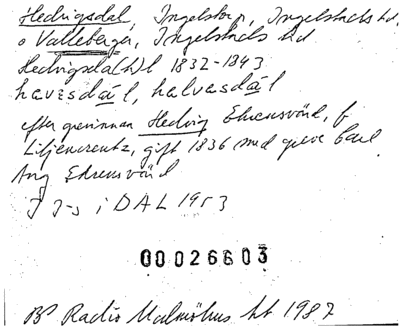 Hedvigsdal, Ingelstorp, Ingelstads hd,
o Valleberga, Ingelstads hd
Hedvigsda(h)l 1832-1843
havesdál, halvesdál
efter grevinnan Hedvig Ehrensvärd, f
Liljencrantz, gift 1836 med greve Carl
Aug Ehrensvärd
J J-s i DAL 1953
00026603
Radio Malmöhus ht 1987